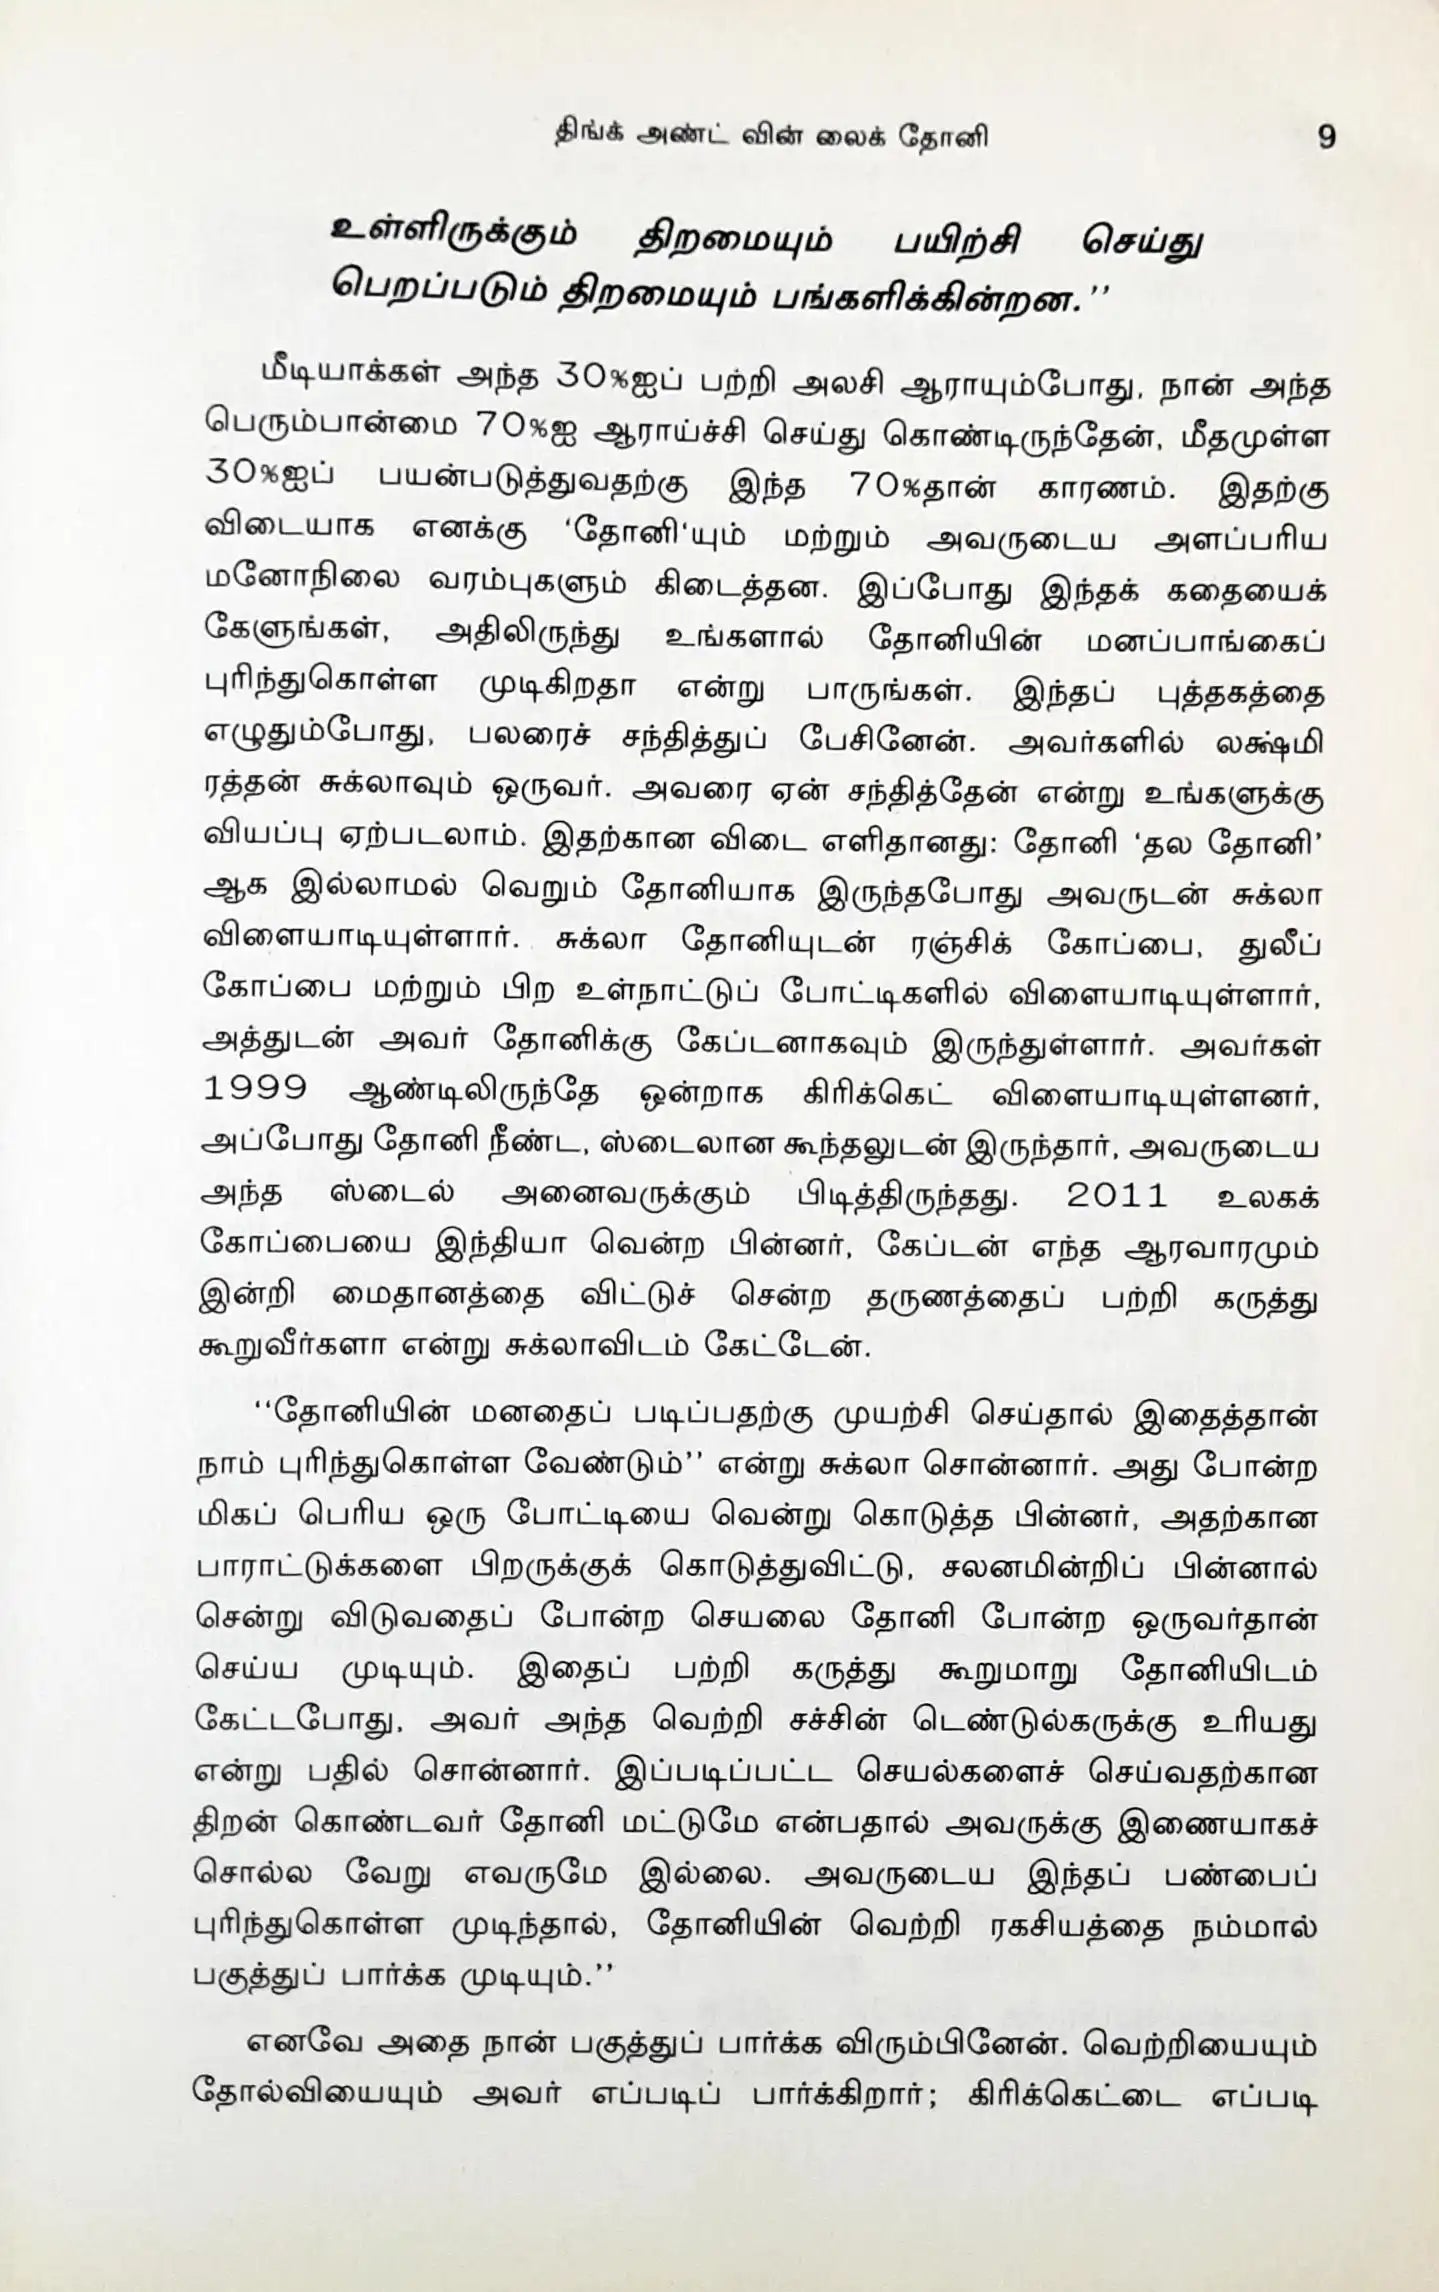 திங்க் அண்ட் வின் லைக் தோனி
9
உள்ளிருக்கும் திறமையும் பயிற்சி செய்து
பெறப்படும் திறமையும் பங்களிக்கின்றன.’’
மீடியாக்கள் அந்த 30%ஐப் பற்றி அலசி ஆராயும்போது, நான் அந்த
பெரும்பான்மை 70%ஐ ஆராய்ச்சி செய்து கொண்டிருந்தேன், மீதமுள்ள
30%ஐப் பயன்படுத்துவதற்கு இந்த 70%தான் காரணம். இதற்கு
விடையாக எனக்கு ‘தோனி‘யும் மற்றும் அவருடைய அளப்பரிய
மனோநிலை வரம்புகளும் கிடைத்தன. இப்போது இந்தக் கதையைக்
கேளுங்கள், அதிலிருந்து உங்களால் தோனியின் மனப்பாங்கைப்
புரிந்துகொள்ள முடிகிறதா என்று பாருங்கள். இந்தப் புத்தகத்தை
எழுதும்போது, பலரைச் சந்தித்துப் பேசினேன். அவர்களில் லக்ஷ்மி
ரத்தன் சுக்லாவும் ஒருவர். அவரை ஏன் சந்தித்தேன் என்று உங்களுக்கு
வியப்பு ஏற்படலாம். இதற்கான விடை எளிதானது: தோனி ‘தல தோனி’
ஆக இல்லாமல் வெறும் தோனியாக இருந்தபோது அவருடன் சுக்லா
விளையாடியுள்ளார். சுக்லா தோனியுடன் ரஞ்சிக் கோப்பை, துலீப்
கோப்பை மற்றும் பிற உள்நாட்டுப் போட்டிகளில் விளையாடியுள்ளார்,
அத்துடன் அவர் தோனிக்கு கேப்டனாகவும் இருந்துள்ளார். அவர்கள்
1999 ஆண்டிலிருந்தே ஒன்றாக கிரிக்கெட் விளையாடியுள்ளனர்,
அப்போது தோனி நீண்ட, ஸ்டைலான கூந்தலுடன் இருந்தார், அவருடைய
அந்த ஸ்டைல் அனைவருக்கும் பிடித்திருந்தது. 2011 உலகக்
கோப்பையை இந்தியா வென்ற பின்னர், கேப்டன் எந்த ஆரவாரமும்
இன்றி மைதானத்தை விட்டுச் சென்ற தருணத்தைப் பற்றி கருத்து
கூறுவீர்களா என்று சுக்லாவிடம் கேட்டேன்.
‘‘தோனியின் மனதைப் படிப்பதற்கு முயற்சி செய்தால் இதைத்தான்
நாம் புரிந்துகொள்ள வேண்டும்’’ என்று சுக்லா சொன்னார். அது போன்ற
மிகப் பெரிய ஒரு போட்டியை வென்று கொடுத்த பின்னர், அதற்கான
பாராட்டுக்களை பிறருக்குக் கொடுத்துவிட்டு, சலனமின்றிப் பின்னால்
சென்று விடுவதைப் போன்ற செயலை தோனி போன்ற ஒருவர்தான்
செய்ய முடியும். இதைப் பற்றி கருத்து கூறுமாறு தோனியிடம்
கேட்டபோது, அவர் அந்த வெற்றி சச்சின் டெண்டுல்கருக்கு உரியது
என்று பதில் சொன்னார். இப்படிப்பட்ட செயல்களைச் செய்வதற்கான
திறன் கொண்டவர் தோனி மட்டுமே என்பதால் அவருக்கு இணையாகச்
சொல்ல வேறு எவருமே இல்லை. அவருடைய இந்தப் பண்பைப்
புரிந்துகொள்ள முடிந்தால், தோனியின் வெற்றி ரகசியத்தை நம்மால்
பகுத்துப் பார்க்க முடியும்.’’
எனவே அதை நான் பகுத்துப் பார்க்க விரும்பினேன். வெற்றியையும்
தோல்வியையும் அவர் எப்படிப் பார்க்கிறார்; கிரிக்கெட்டை எப்படி